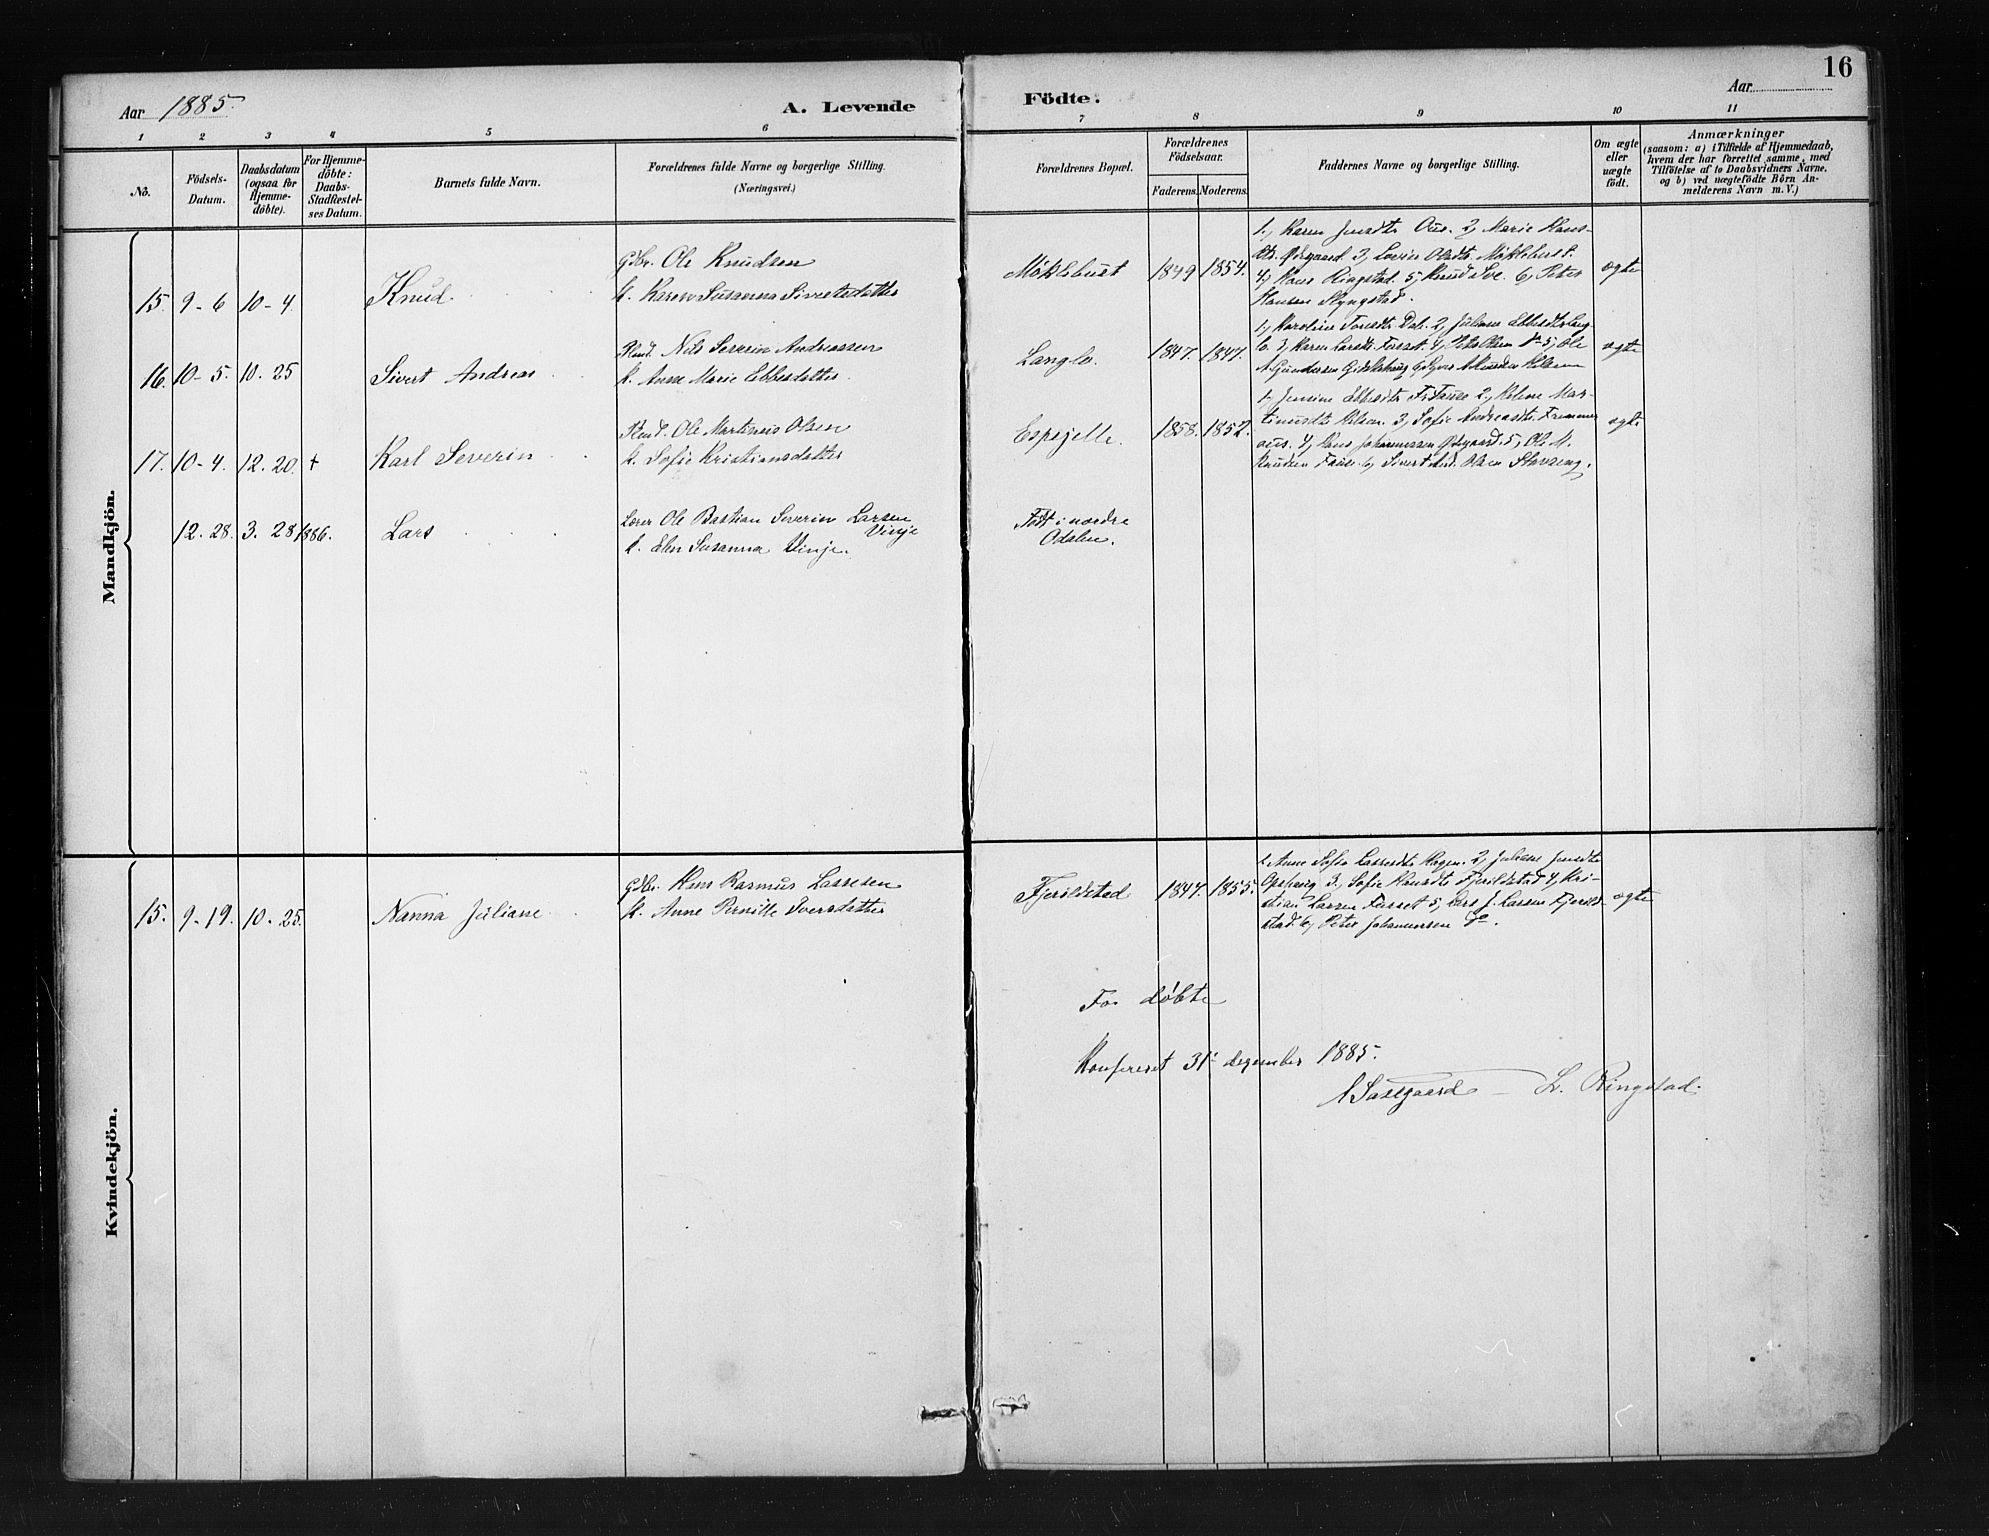 16
Aar 1885.
A. Levende
Födte.
Aar
1
2
3
4
5
6
7
8
9
10
11
No.
Födsels-
Datum.
Daabsdatum
(ogsaa for
Hjemme-
döbte).
For Hjemme-
döbte:
Daabs-
Stadfæstel-
ses Datum.
Barnets fulde Navn.
Forældrenes fulde Navne og borgerlige Stilling.
(Næringsvei.)
Forældrenes Bopæl.
Forældrenes
Födselsaar.
Faderens.
Moderens.
Faddernes Navne og borgerlige Stilling.
Om ægte
eller
uægte
födt.
Anmærkninger
(saasom: a) i Tilfælde af Hjemmedaab,
hvem der har forrettet samme, med
Tilföielse af to Daabsvidners Navne,
og b) ved uægtefödte Börn An-
melderens Navn m. V.)
Mandkjön.
15. 9-6 10-4. Knud
Gdbr. Ole Knudsen
K. Karen Susanna Sivertsdatter
Møklebust 1849 1854.
1, Karen Jensdtr Aus. 2, Marie Hans-
dtr. Ødegaard 3, Lovise Olsdtr Møklebust.
4, Hans Ringstad. 5, Knud Sve. 6, Peter
Hansen Klyngstad.
ægte
16. 10-5. 10. 25 Sivert Andreas
Plmd. Nils Severin Andreassen
K. Anne Marie Ebbesdatter.
Langlo. 1847. 1847.
1, Karoline Tonsdtr Dale. 2, Juliane Ebbesdtr Lang-
lo. 3, Karen Larsdtr Fursset. 4, Peter Olsen do 5, Ole
ægte
17. 10-4. 12. 20 + Karl Severin
Plmd. Ole Martinus Olsen
K. Sofie Kristiansdatter
Espejelle. 1858. 1852.
1, Jensine Ebbesdtr Fr. Fause 2, Helene Mar-
tinusdtr Nilsen. 3, Sofie Andreasdtr Fremmer
aus. 4, Hans Johannessen Ødegaard. 5, Ole M.
Knudsen Fause. 6, Sivert And. Olsen
ægte
12. 28. 3. 28 1886. Lars
Lærer Ole Bastian Severin Larsen
Vinje
K. Elen Susanna Vinje.
Født i nordre
Odalen.
Kvindekjön.
15. 9-19. 10. 25. Nanna Juliane
Gdbr. Hans Rasmus Lassesen
K. Anne Pernille Iversdatter
Fjerildstad 1847 1855.
1. Anne Sofie Lassesdtr Hagen. 2, Juliane Jensdtr
Opshaug 3, Sofie Hansdtr Fjerildstad 4, Kri-
stian Larsen Fursset 5, Lars J. Larsen Fjerild-
stad. 6, Peter Johannessen do.
ægte
For døbte
Konfereret 31te dezember 1885.
Saxegaard — L. Ringstad.